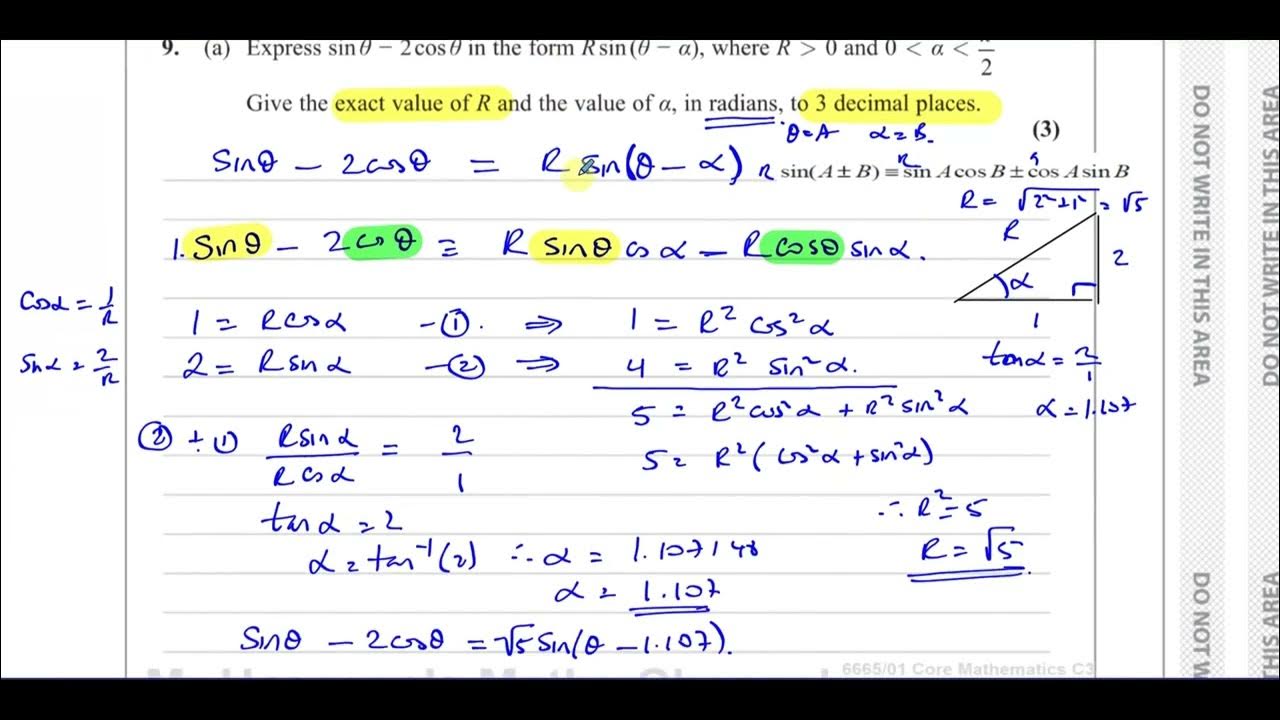 9. (a) Express sin θ − 2 cos θ in the form R sin (θ − α), where R > 0 and 0 < α < π/2
Give the exact value of R and the value of α, in radians, to 3 decimal places.
θ=A α=B.
(3)
Sinθ − 2cosθ = R sin(θ − α)
R sin(A ± B) ≡ sin A cos B ± cos A sin B
R R
R = √(2²+1²) = √5
1. Sinθ − 2cosθ ≡ R sinθ cosα − R cosθ sinα.
R
2
α
1
cosα = 1/R
1 = R cosα −①. ⇒ 1 = R² cos²α
sinα = 2/R
2 = R sinα −② ⇒ 4 = R² sin²α.
tanα = 2/1
5 = R²cos²α + R²sin²α
α = 1.107
② ÷ ① Rsinα/Rcosα = 2/1
5 = R²(cos²α + sin²α)
tanα = 2
∴ R² = 5
α = tan⁻¹(2) ∴ α = 1.107148
R = √5
α = 1.107
Sinθ − 2cosθ = √5 Sin(θ − 1.107).
6665/01 Core Mathematics C3
DO NOT WRITE IN THIS AREA
DO NOT WRITE IN THIS AREA
DO NOT W
THIS AREA